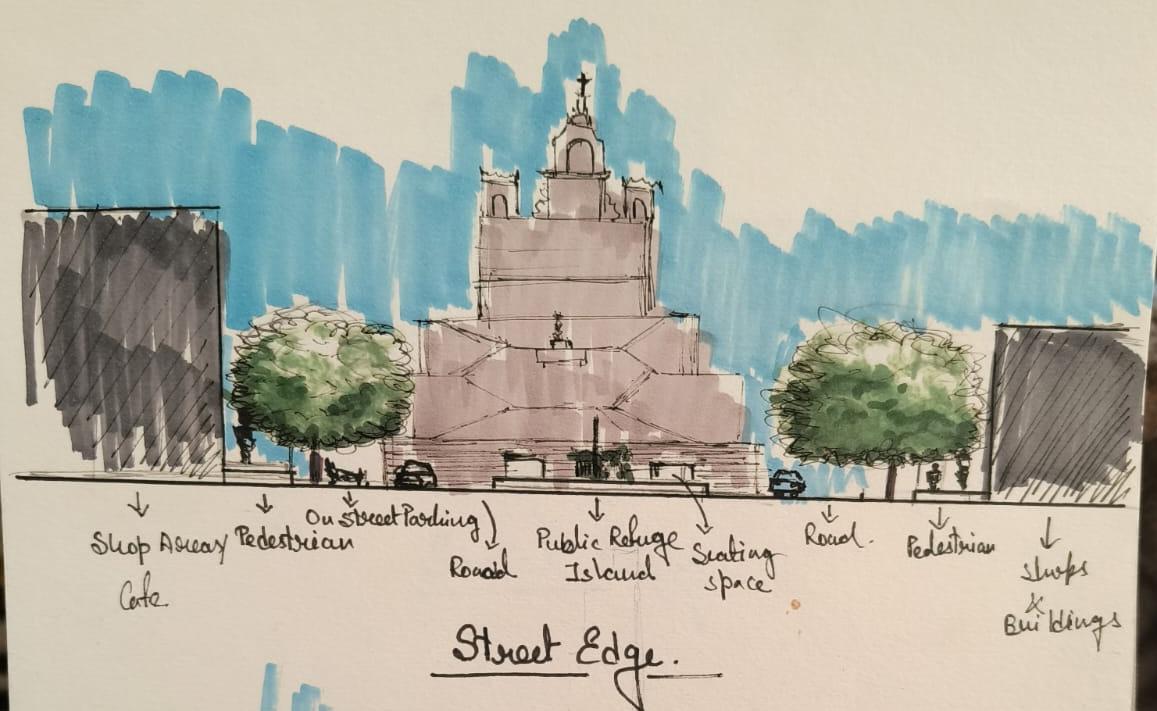 Shop Areas/
Cafe.
Pedestrian
On Street Parking
Road
Public Refuge
Island
Seating
space
Road.
Pedestrian
Shops
&
Buildings
Street Edge.